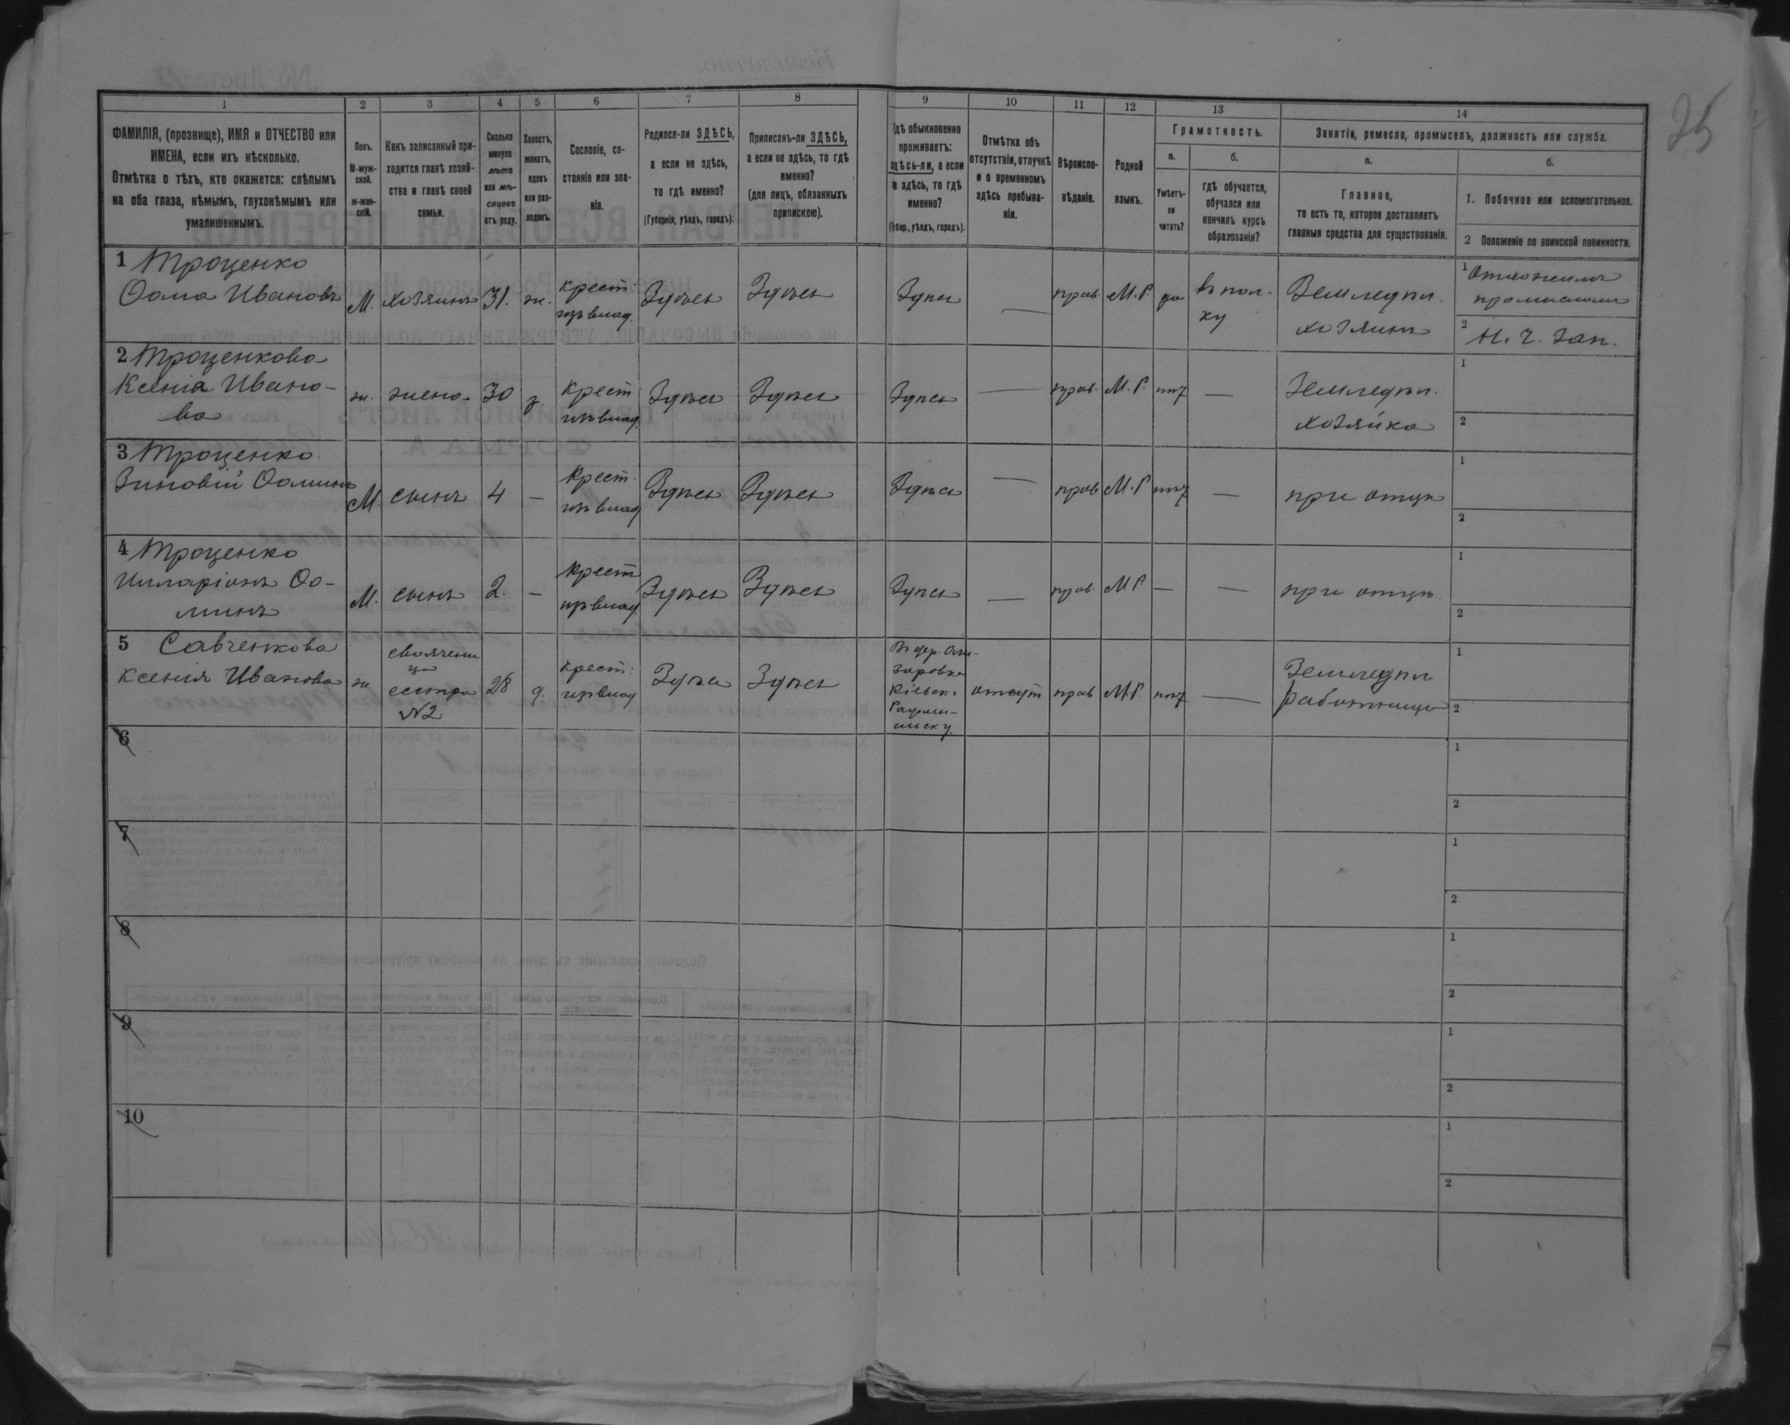 25
1 2 3 4 5 6 7 8 9 10 11 12 13 14
ФАМИЛІЯ, (прозвище), ИМЯ и ОТЧЕСТВО или
ИМЕНА, если ихъ нѣсколько.
Отмѣтка о тѣхъ, кто окажется: слѣпымъ
на оба глаза, нѣмымъ, глухонѣмымъ или
умалишеннымъ.
Полъ.
М-муж-
ской.
ж-жен-
скій.
Какъ записанный при-
ходится главѣ хозяй-
ства и главѣ своей
семьи.
Сколько
минуло
лѣтъ
или мѣ-
сяцевъ
отъ роду.
Холостъ,
женатъ,
вдовъ
или раз-
веденъ.
Сословіе, со-
стояніе или зва-
ніе.
Родился-ли ЗДѢСЬ,
а если не здѣсь,
то гдѣ именно?
(Губернія, уѣздъ, городъ).
Приписанъ-ли ЗДѢСЬ,
а если не здѣсь, то гдѣ
именно?
(для лицъ, обязанныхъ
припискою).
гдѣ обыкновенно
проживаетъ:
здѣсь-ли, а если
не здѣсь, то гдѣ
именно?
(Губер., уѣздъ, городъ).
Отмѣтка объ
отсутствіи, отлучкѣ
и о временномъ
здѣсь пребыва-
ніи.
Вѣроиспо-
вѣданіе.
Родной
языкъ.
Грамотность.
а.
Умѣетъ-
ли
читать?
б.
гдѣ обучается,
обучался или
кончилъ курсъ
образованія?
Занятіе, ремесло, промыселъ, должность или служба.
а.
Главное,
то есть то, которое доставляетъ
главныя средства для существованія.
б.
1. Побочное или вспомогательное.
2 Положеніе по воинской повинности.
1 Троценко
Ѳома Ивановъ
М.
хозяинъ
31.
ж.
крест.
изъ влад.
Здѣсь
Здѣсь
Здѣсь
—
прав.
М.Р.
да
въ пол-
ку
Земледѣл.
хозяинъ
1 Отхожимъ
промысломъ
2 Н. Ч. Зап.
2 Троценкова
Ксенія Ивано-
ва
ж.
жена
30
з
крест
изъ влад.
Здѣсь
Здѣсь
Здѣсь
—
прав.
М.Р.
нѣт
—
Земледѣл.
хозяйка
1
2
3 Троценко
Зиновій Ѳоминъ
М
сынъ
4
—
крест.
изъ влад
Здѣсь
Здѣсь
Здѣсь
—
прав
М.Р
нѣт
—
при отцѣ
1
2
4 Троценко
Иларіонъ Ѳо-
минъ
М.
сынъ
2.
—
крест
изъ влад
Здѣсь
Здѣсь
Здѣсь
—
прав.
М Р
—
—
при отцѣ
1
2
5 Савченкова
Ксенія Иванова
ж
своячени
ца
сестра
№2
28
д.
крест.
изъ влад
Здѣсь
Здѣсь
Кіевск.
отсут
прав
М.Р.
нѣт
—
Земледѣл
работница
1
2
6
1
2
7
1
2
8
1
2
9
1
2
10
1
2